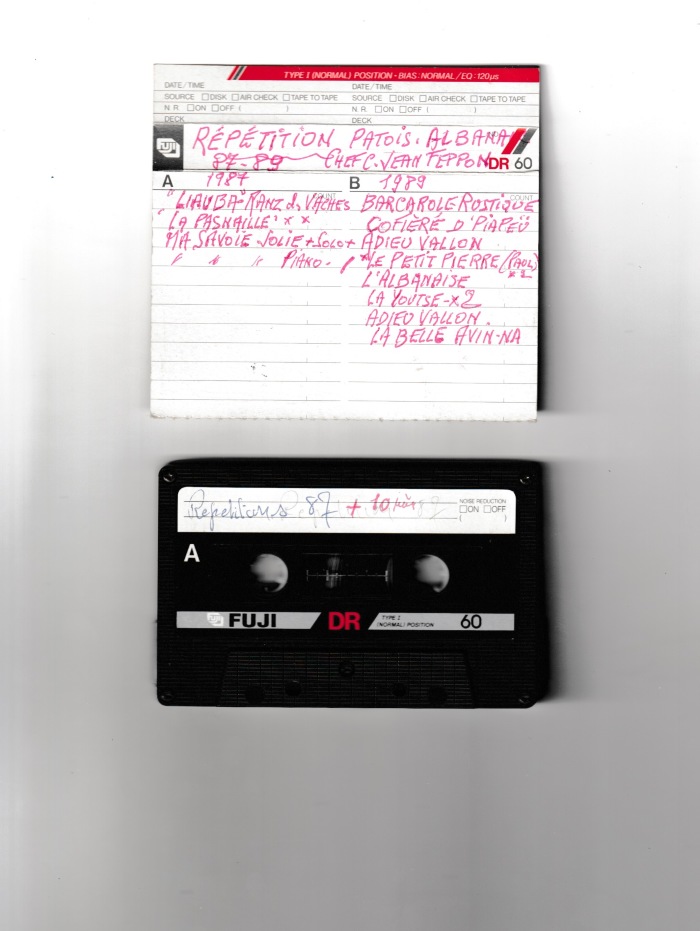 TYPE I (NORMAL) POSITION - BIAS: NORMAL / EQ: 120µs
DATE / TIME DATE / TIME
SOURCE □DISK □AIR CHECK □TAPE TO TAPE SOURCE □DISK □AIR CHECK □TAPE TO TAPE
N. R. □ON □OFF ( ) N. R. □ON □OFF ( )
DECK
RÉPÉTITION PATOIS. ALBANA
FUJI
87-89 CHEF C. JEAN FEPPON DR 60
A 1987 B 1989
COUNT COUNT
"LIAUBA" RANZ d. VACHES
"LA PASNAILLE" x x
MA SAVOIE JOLIE + SOLO +
" " " PIANO.
BARCAROLE RUSTIQUE
COFIÈRÉ D'PIAPEÜ
ADIEU VALLON
*LE PETIT PIERRE (PAUL)
x 2
L'ALBANAISE
LA YOUTSE - x 2
ADIEU VALLON.
LA BELLE AVIN-NA
Repetitions 87 + 10
NOISE REDUCTION
□ON □OFF
( )
A
FUJI DR TYPE I (NORMAL) POSITION 60